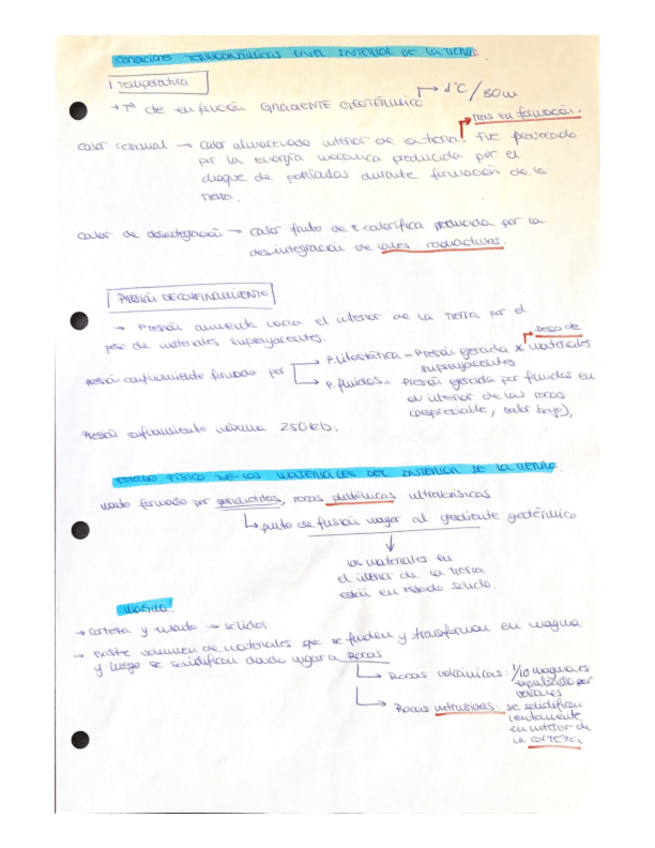 CONDICIONES TERMODINÁMICAS EN EL INTERIOR DE LA TIERRA.
Temperatura
→ Tª cte en función GRADIENTE GEOTÉRMICO → 1ºC/30m
calor residual → calor almacenado interior de la tierra. Fue provocado
por la energía mecánica producida por el
choque de partículas durante formación de la
tierra.
calor de desintegración → calor fruto de E calorífica producida por la
desintegración de radiactivos.
PRESIÓN DE CONFINAMIENTO
→ Presión aumenta hacia el interior de la tierra por el
peso de materiales suprayacentes.
peso de
Presión confinamiento formada por → P. litostática = Presión generada x materiales
suprayacentes
→ P. fluidos = Presión generada por fluidos en
el interior de las rocas
(despreciable, valor bajo),
Presión confinamiento máxima
ESTADO FÍSICO DE LOS MATERIALES DEL INTERIOR DE LA TIERRA.
manto formado por peridotitas, rocas plutónicas ultrabásicas
↳ punto de fusión mayor al gradiente geotérmico
los materiales en
el interior de la tierra
están en estado sólido.
MAGMA:
→ corteza y manto → sólidos
→ Existe volumen de materiales que se funden y transforman en magma
y luego se solidifican dando lugar a Rocas
→ Rocas volcánicas: 1/10 magma es
expulsado por
volcanes
→ Rocas intrusivas: se solidifican
lentamente
en interior de
la corteza